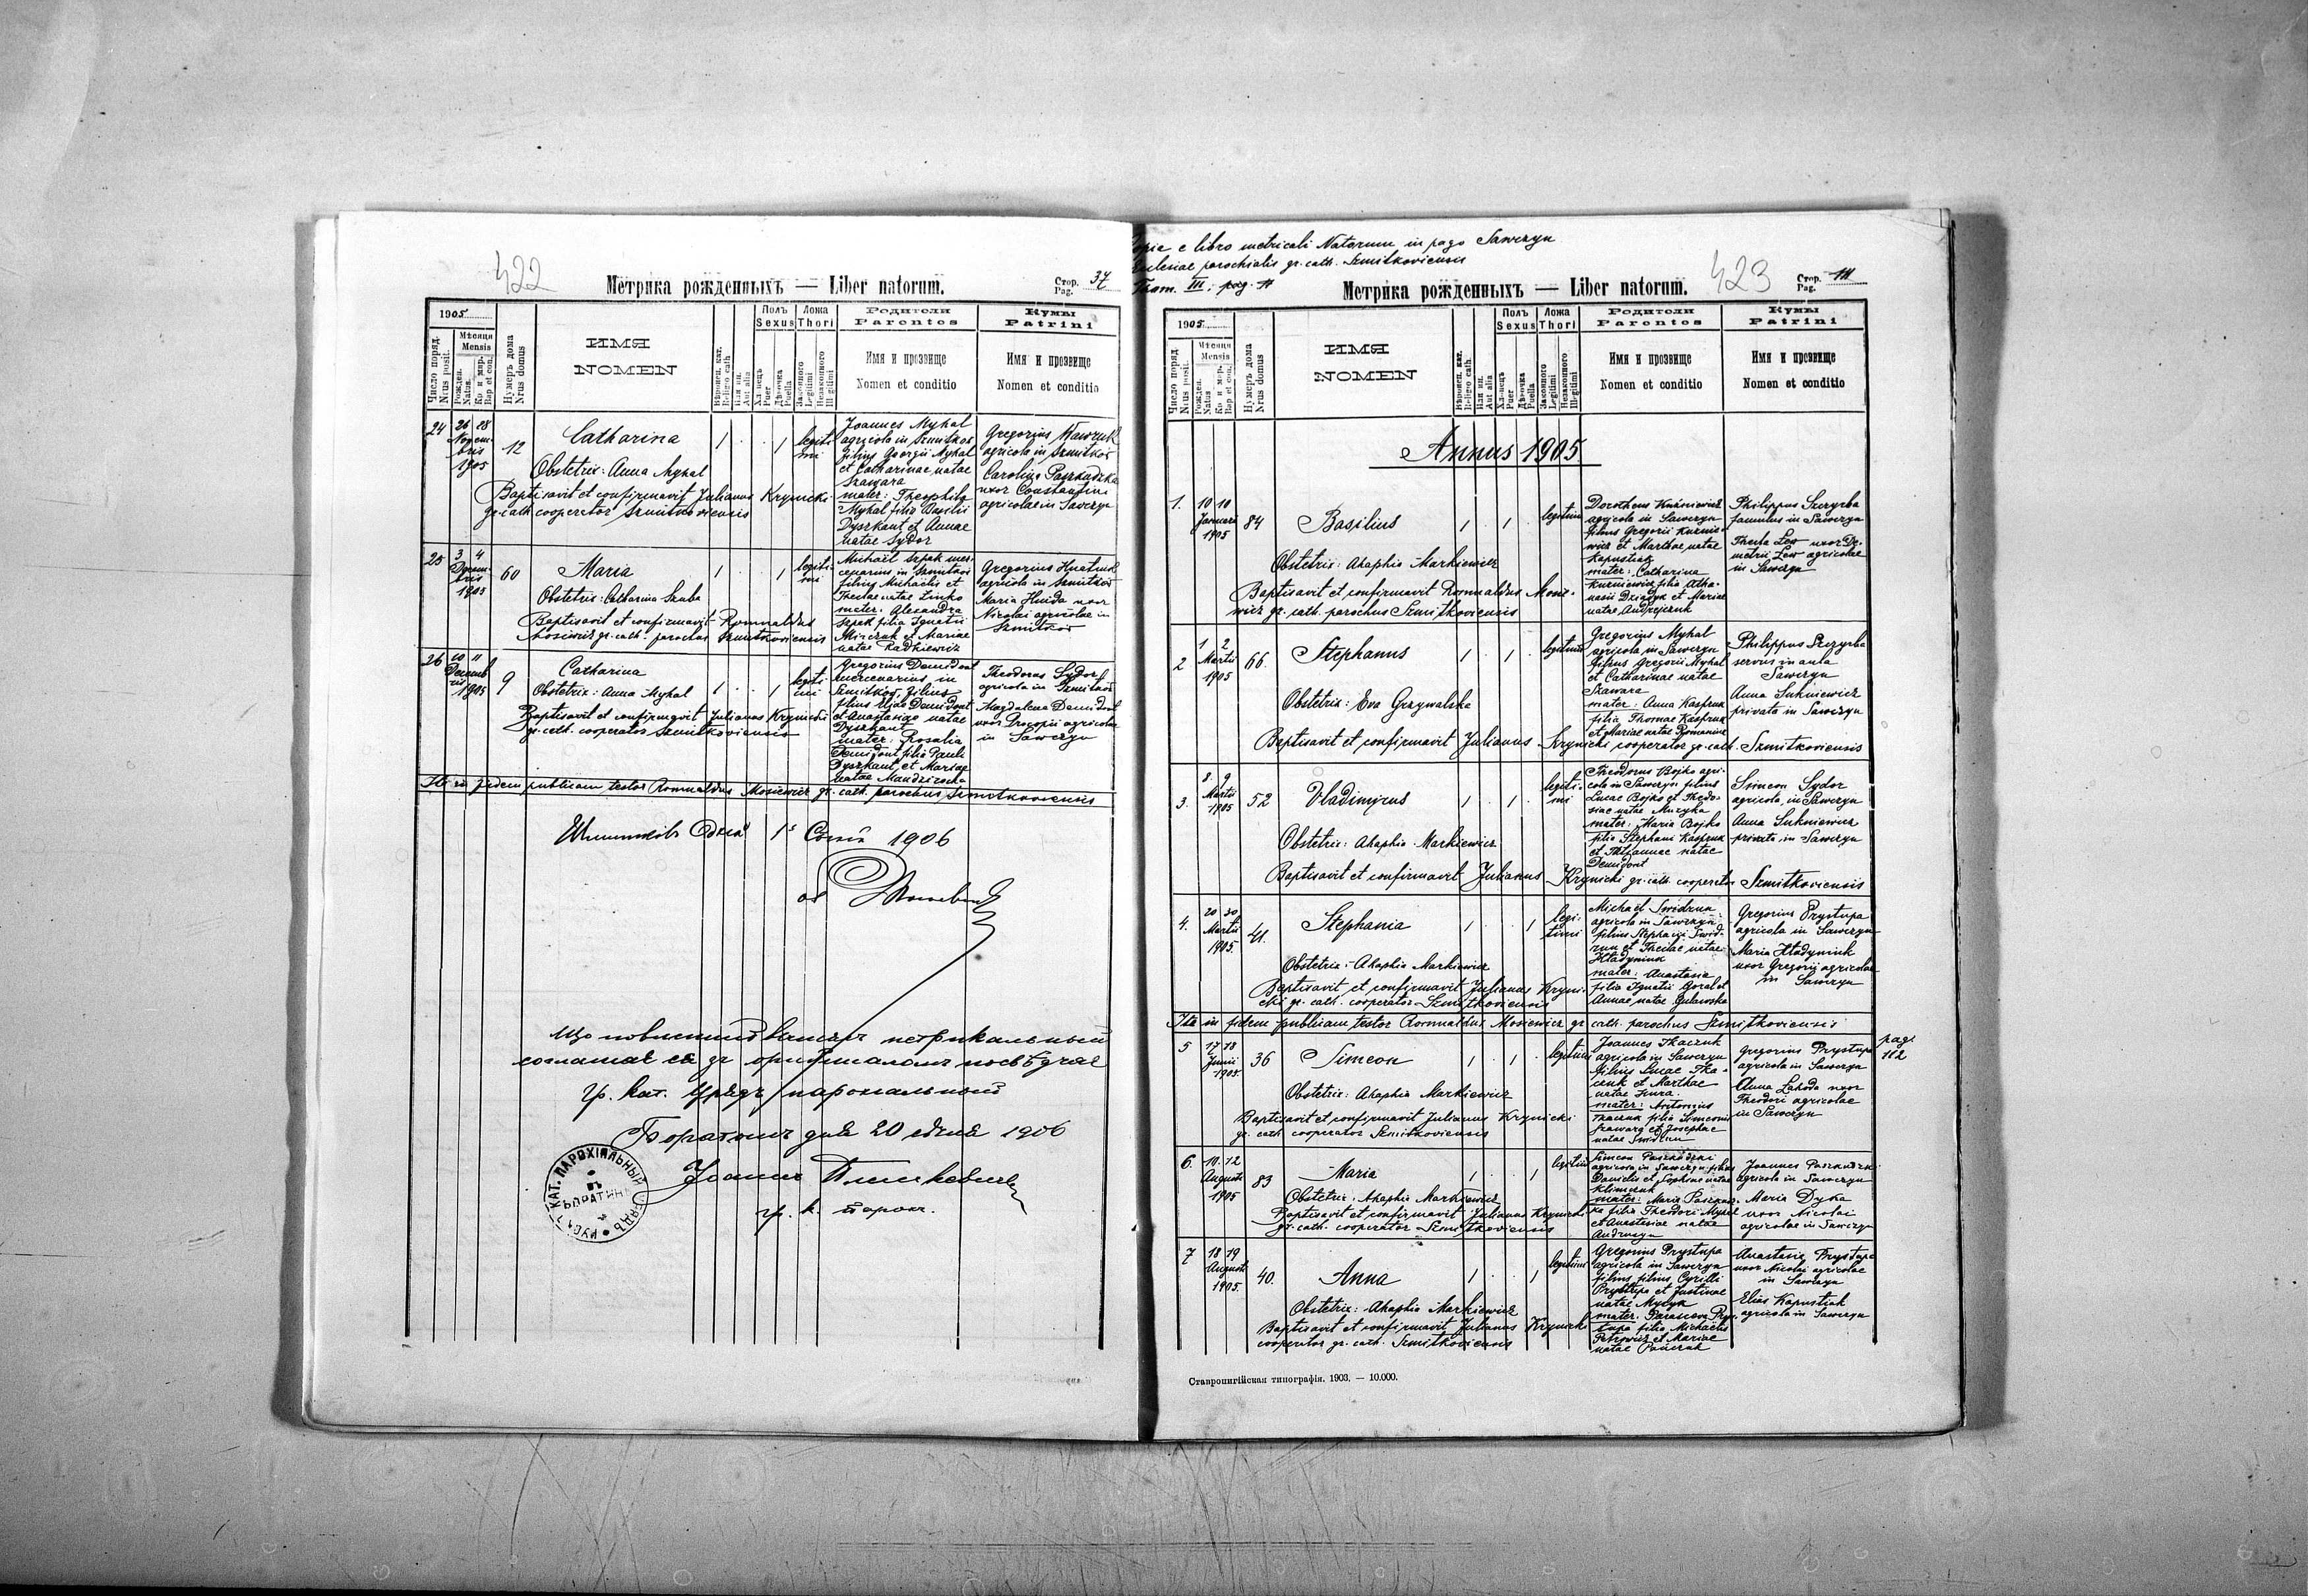 422
Метрика рожденныхъ — Liber natorum.
Стор. Pag. 37
1905
Число поряд. Nrus posit.
Мѣсяця Mensis
Рожден. Natus.
Кр. и мир. Bap et con.
Нумеръ дома Nrus domus
ИМЯ
NOMEN
Вѣроисп. кат. Religio cath.
Или ин. Aut alia
Полъ Sexus
Хлопецъ Puer
Дѣвочка Puella
Ложа Thori
Законного Legitimi
Незаконного Illegitimi
Родители
Parentes
Имя и прозвище
Nomen et conditio
Кумы
Patrini
Имя и прозвище
Nomen et conditio
24
26 28
Novem-
bris
1905
12
Catharina
Obstetrix: Anna Mykal
Baptisavit et confirmavit Julianus Krynicki
gr. cath. cooperator Szmitkoviensis
1 1
legiti
mi
Joannes Mykal
agricola in Szmitków
filius Georgii Mykal
et Catharinae natae
Szawara
mater: Theophila
Mykal filia Basilii
Dyszkant et Annae
natae Sydor
Gregorius
agricola in Szmitków
Carolina
uxor Constantini
agricolae in Sawczyn
25
3 4
Decem-
bris
1905
60
Maria
Obstetrix: Catharina Szuba
Baptisavit et confirmavit Romualdus
Mosiewicz gr. cath. parochus Szmitkoviensis
1 1
legiti-
mi
Michaël Szpak mer-
cenarius in Szmitków
filius Michaëlis et
Theclae natae Linko
mater: Alexandra
Szpak filia Ignatii
et Mariae
natae Radkiewicz
Gregorius Hnatiuk
agricola in Szmitków
Maria Hnida uxor
Nicolai agricolae in
Szmitków
26
10 11
Decemb
ris
1905
9
Catharina
Obstetrix: Anna Mykal
Baptisavit et confirmavit Julianus Krynicki
gr. cath. cooperator Szmitkoviensis
1 1
legiti
mi
Gregorius Demidont
mercenarius in
Szmitków, filius
filius Eliae Demidont
et Anastasiae natae
Dyszkant
mater: Rosalia
Demidont filia Pauli
Dyszkant et Mariae
natae
Theodorus Sydor
agricola in Szmitków
Magdalena Demidont
uxor Procopii agricolae
in Sawczyn
Ita in fidem publicam testor Romualdus Mosiewicz gr. cath. parochus Szmitkoviensis
1906
Що повисший метрикальный
согласае ся зъ оригиналомъ посвѣдчае
гр. кат. Урядъ парохіальный
Боратынъ дня 20 січня 1906
Іоаннъ
гр. к. парох.
КАТ. ПАРОХІАЛЬНЫЙ
ВЪ
БОРАТИНѢ
Copia e libro metricali Natorum in pago Sawczyn
Ecclesiae parochialis gr. cath. Szmitkoviensis
Tom. III. pag. 111
423
Метрика рожденныхъ — Liber natorum.
Стор. Pag. 111
1905
Число поряд Nrus posit.
Мѣсяця Mensis
Рожден. Natus
Кр. и мир. Bap et con.
Нумеръ дома Nrus domus
ИМЯ
NOMEN
Вѣроисп. кат. Religio cath.
Или ин. Aut alia
Полъ Sexus
Хлопецъ Puer
Дѣвочка Puella
Ложа Thori
Законного Legitimi
Незаконного Illegitimi
Родители
Parentes
Имя и прозвище
Nomen et conditio
Кумы
Patrini
Имя и прозвище
Nomen et conditio
Annus 1905
1.
10 10
Januarii
1905
84
Basilius
Obstetrix: Ahaphia Markiewicz
Baptisavit et confirmavit Romualdus Mosie-
wicz gr. cath. parochus Szmitkoviensis
1 1
legitimi
Dorotheus Kuźniewicz
agricola in Sawczyn
filius Gregorii Kuźnie-
wicz et Marthae natae
Kapustiak
mater: Catharina
Kuźniewicz filia Atha-
nasii Dziadyk et Mariae
natae Andrejczuk
Philippus Szczyrba
famulus in Sawczyn
Thecla Lew uxor De-
metrii Lew agricolae
in Sawczyn
2
1 2
Martii
1905
66
Stephanus
Obstetrix: Eva Grzywalska
Baptisavit et confirmavit Julianus Krynicki cooperator gr. cath. Szmitkoviensis
1 1
legitimi
Gregorius Mykal
agricola in Sawczyn
filius Gregorii Mykal
et Catharinae natae
Szawara
mater: Anna Kasfruk
filia Thomae Kasfruk
et Mariae natae Romaniuk
Philippus Szczyrba
servus in aula
Sawczyn
Anna Sukniewicz
privata in Sawczyn
3.
8 9
Martii
1905
52
Vladimirus
Obstetrix: Ahaphia Markiewicz
Baptisavit et confirmavit Julianus Krynicki gr. cath. cooperator Szmitkoviensis
1 1
legiti-
mi
Theodorus Bojko agri-
cola in Sawczyn filius
Lucae Bojko et Thedo-
siae natae Muzyka
mater: Maria Bojko
filia Stephani Kasfruk
et natae
Demidont
Simeon Sydor
agricola in Sawczyn
Anna Sukniewicz
privata in Sawczyn
4.
20 30
Martii
1905.
41.
Stephania
Obstetrix: Ahaphia Markiewicz
Baptisavit et confirmavit Julianus Kryni-
cki gr. cath. cooperator Szmitkoviensis
1 1
legi-
timi
Michaël Swidzun
agricola in Sawczyn
filius Stephani Swid-
zun et Theclae natae
Hładyniuk
mater: Anastasia
filia Ignatii Goral et
Annae natae
Gregorius Prystupa
agricola in Sawczyn
Maria Hładyniuk
uxor Gregorii agricolae
in Sawczyn
Ita in fidem publicam testor Romualdus Mosiewicz gr. cath. parochus Szmitkoviensis
pag.
112
5
17 18
Junii
1905.
36
Simeon
Obstetrix: Ahaphia Markiewicz
Baptisavit et confirmavit Julianus Krynicki
gr. cath. cooperator Szmitkoviensis
1 1
legitimi
Joannes Tkaczuk
agricola in Sawczyn
filius Lucae Tka-
czuk et Marthae
natae
mater: Antonina
Tkaczuk filia Simeonis
Szawara et Josephae
natae Swidzun
Gregorius Prystupa
agricola in Sawczyn
Anna Lahoda uxor
Theodori agricolae
in Sawczyn
6.
10. 12
Augusti
1905
83
Maria
Obstetrix: Ahaphia Markiewicz
Baptisavit et confirmavit Julianus Krynicki
gr. cath. cooperator Szmitkoviensis
1 1
legitimi
Simeon Paszkudzki
agricola in Sawczyn filius
Danielis et Sophiae natae
Klimczuk
mater: Maria Paszkudz-
ka filia Theodori Mykal
et Anastasiae natae
Joannes Paszkudzki
agricola in Sawczyn
Maria Dyka
uxor Nicolai
agricolae in Sawczyn
7
18 19
Augusti
1905.
40.
Anna
Obstetrix: Ahaphia Markiewicz
Baptisavit et confirmavit Julianus Krynicki
cooperator gr. cath. Szmitkoviensis
1 1
legitimi
Gregorius Prystupa
agricola in Sawczyn
filius filius Cyrilli
Prystupa et Justinae
natae Mysyk
mater: Parasceva Prys-
tupa filia Michaëlis
Petrowicz et Mariae
natae Pańczuk
Anastasia Prystupa
uxor Nicolai agricolae
in Sawczyn
Elias Kapustiak
agricola in Sawczyn
Ставропигійская типографія. 1903. — 10.000.